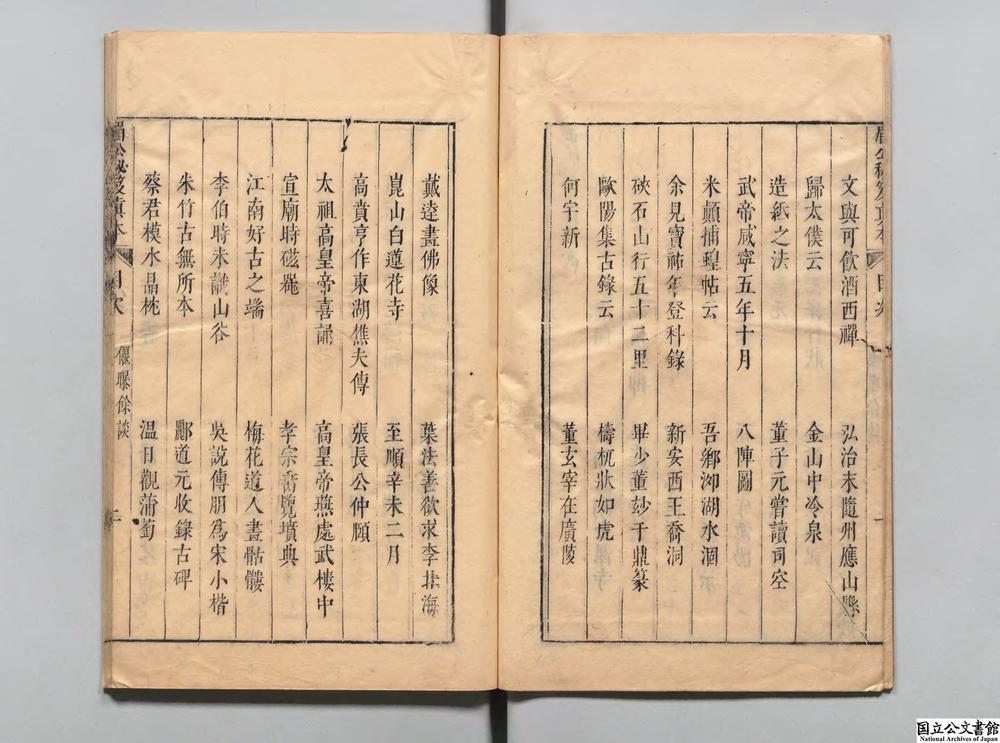 文與可飲酒西禪 弘治末隨州應山縣
歸太僕云 金山中冷泉
造紙之法 董子元嘗讀司空
武帝咸寧五年十月 八陣圖
米顛捕蝗帖云 吾鄉泖湖水涸
余見寶祐年登科錄 新安西王喬洞
硤石山行五十二里 畢少董玅于鼎篆
歐陽集古錄云 檮杌狀如虎
何宇新 董玄宰在廣陵
目次 一
戴逵畫佛像 葉法善欲求李北海
崑山白蓮花寺 至順辛未二月
高賁亨作東湖樵夫傳 張長公仲頤
太祖高皇帝喜誦 高皇帝燕處武樓中
宣廟時磁甌 孝宗喬覽墳典
江南好古之端 梅花道人畫骷髏
李伯時未識山谷 吳說傳朋爲宋小楷
朱竹古無所本 酈道元收錄古碑
蔡君模水晶枕 溫日觀蒲萄
眉公秘笈真本 目次 偃曝餘談 二
国立公文書館
National Archives of Japan